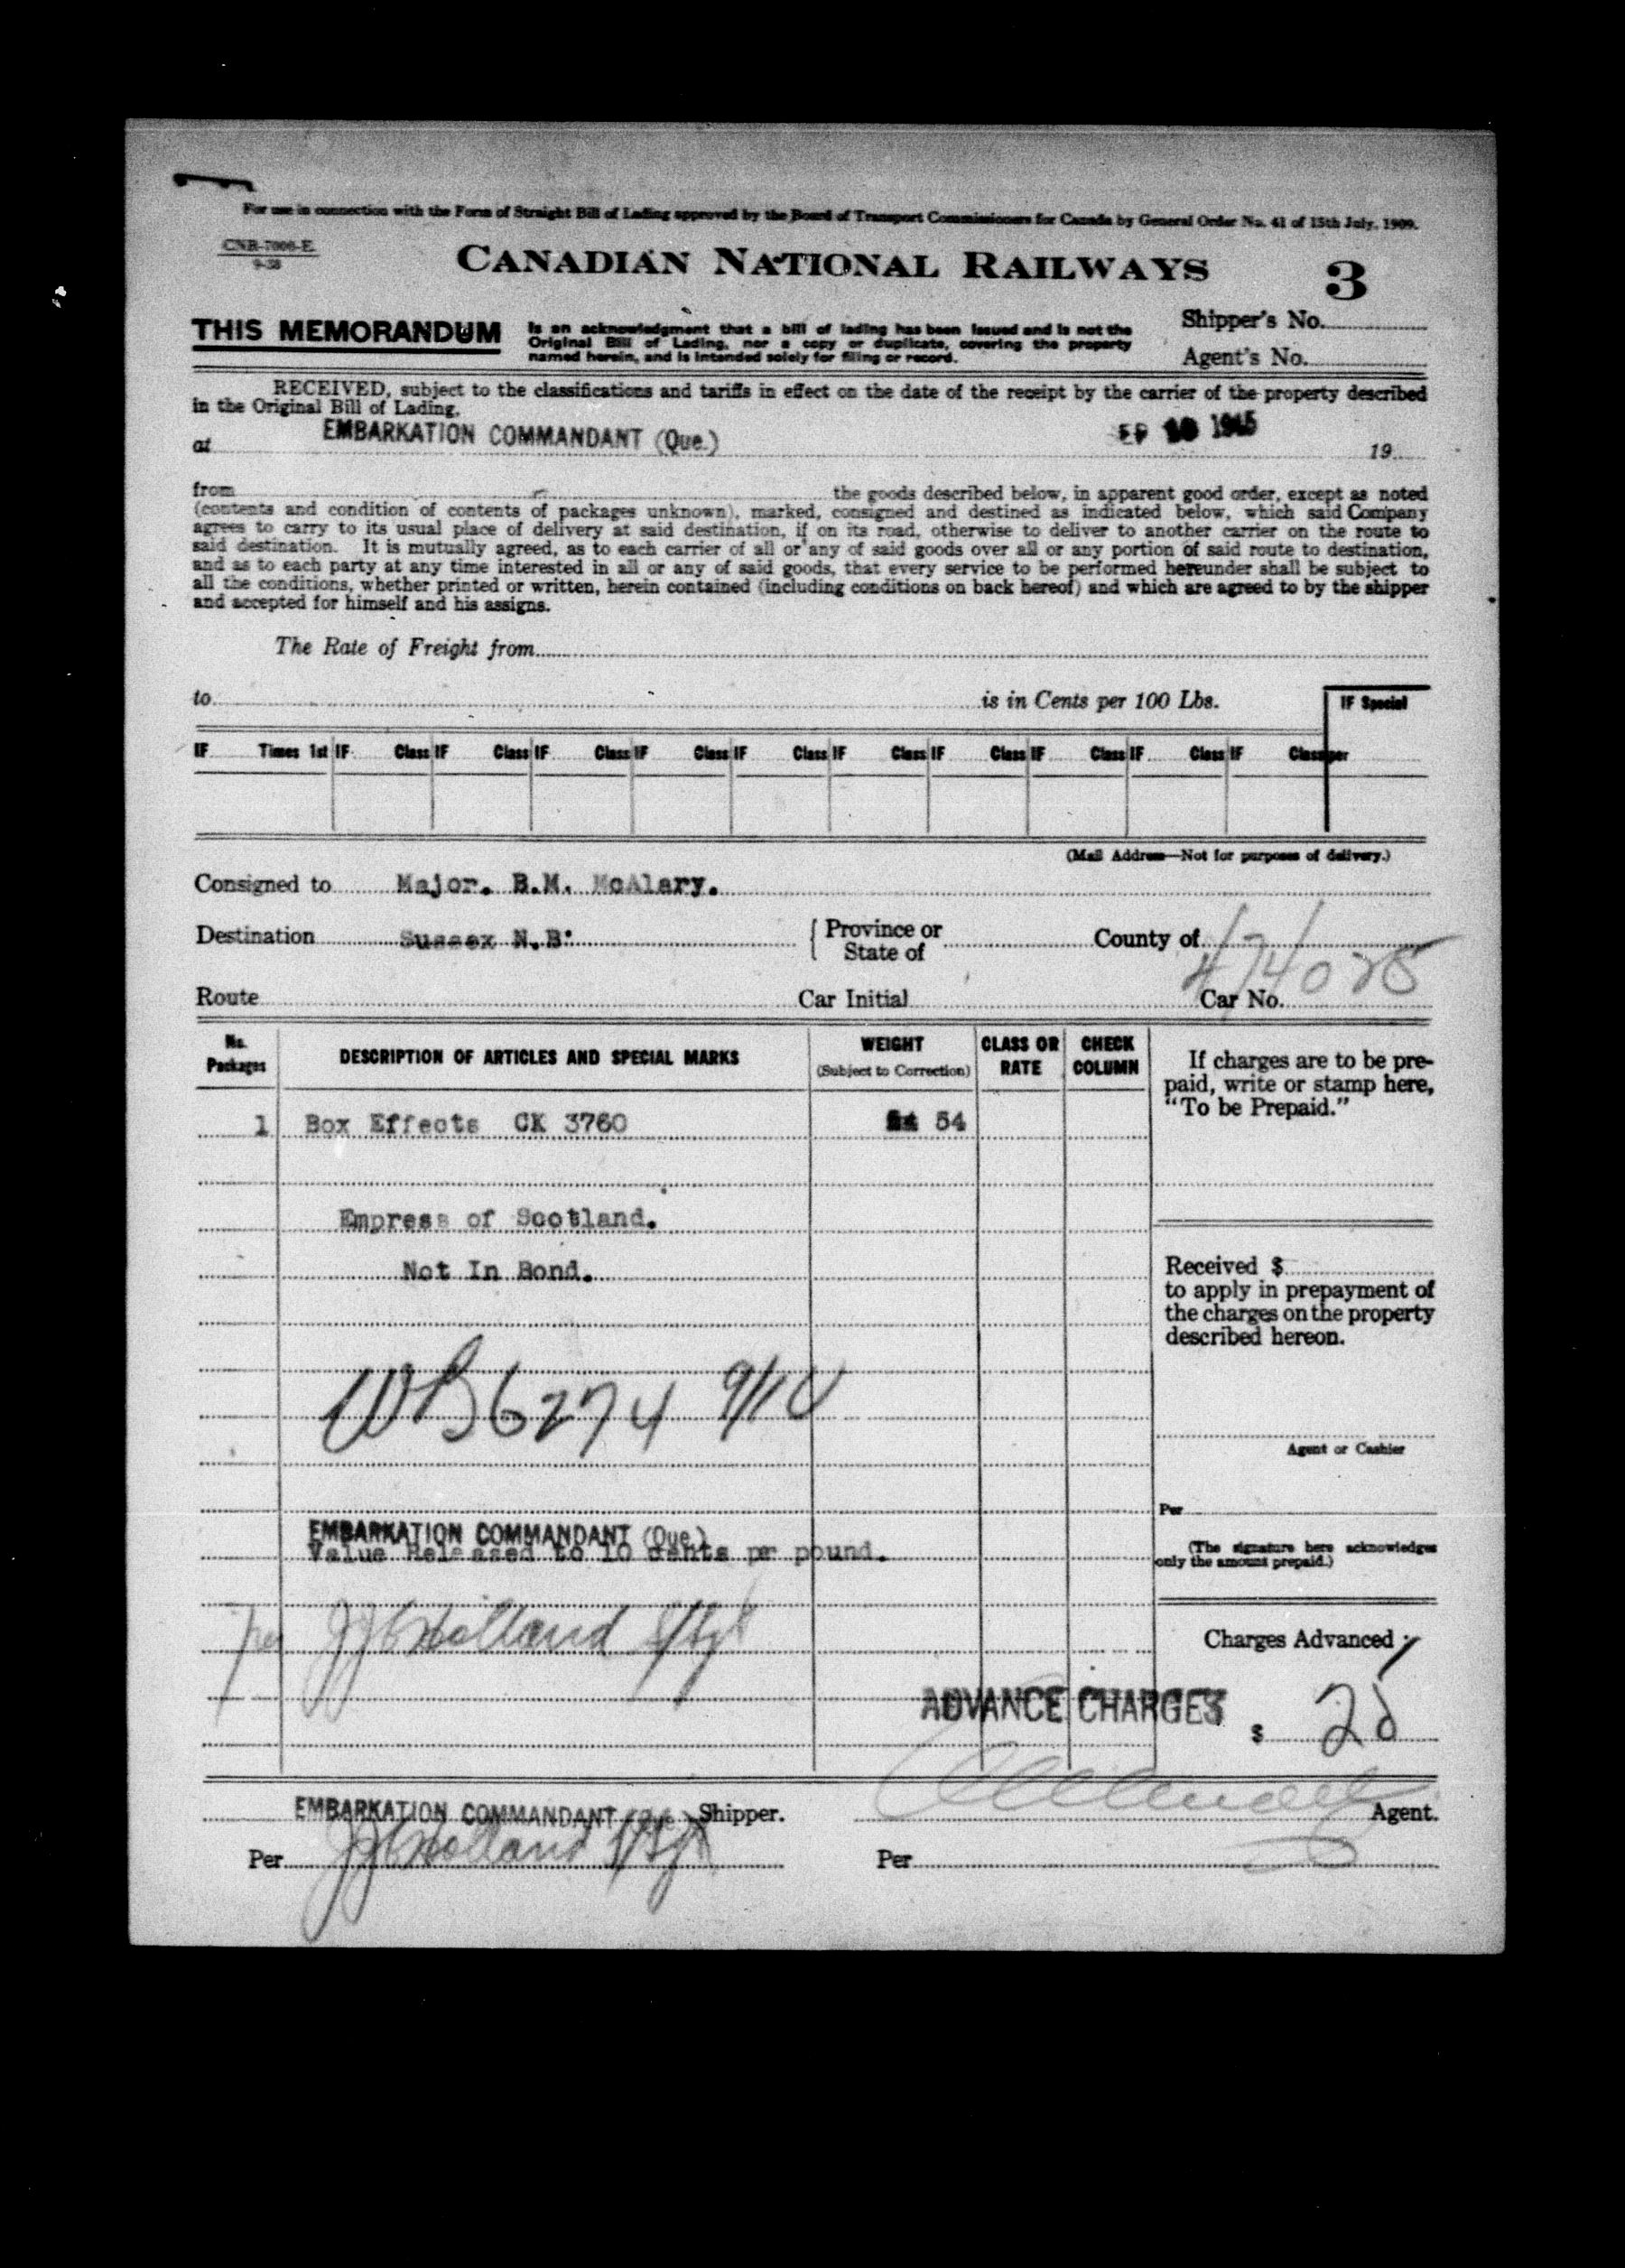 For use in connection with the Form of Straight Bill of Lading approved by the Board of Transport Commissioners for Canada by General Order No. 41 of 15th July, 1909.
CNR-7000-E.
9-38
CANADIAN NATIONAL RAILWAYS
3
THIS MEMORANDUM
is an acknowledgment that a bill of lading has been issued and is not the
Original Bill of Lading, nor a copy or duplicate, covering the property
named herein, and is intended solely for filing or record.
Shipper's No.
Agent's No.
RECEIVED, subject to the classifications and tariffs in effect on the date of the receipt by the carrier of the property described
in the Original Bill of Lading,
at EMBARKATION COMMANDANT (Que.) 1945 19
from the goods described below, in apparent good order, except as noted
(contents and condition of contents of packages unknown), marked, consigned and destined as indicated below, which said Company
agrees to carry to its usual place of delivery at said destination, if on its road, otherwise to deliver to another carrier on the route to
said destination. It is mutually agreed, as to each carrier of all or any of said goods over all or any portion of said route to destination,
and as to each party at any time interested in all or any of said goods, that every service to be performed hereunder shall be subject to
all the conditions, whether printed or written, herein contained (including conditions on back hereof) and which are agreed to by the shipper
and accepted for himself and his assigns.
The Rate of Freight from
to is in Cents per 100 Lbs.
IF Special
IF Times 1st IF Class IF Class IF Class IF Class IF Class IF Class IF Class IF Class IF Class IF Class per
(Mail Address—Not for purposes of delivery.)
Consigned to Major. B.M. McAlary.
Destination Sussex N.B. Province or State of County of
474025
Route Car Initial Car No.
No. Packages
DESCRIPTION OF ARTICLES AND SPECIAL MARKS
WEIGHT (Subject to Correction)
CLASS OR RATE
CHECK COLUMN
If charges are to be pre-
paid, write or stamp here,
"To be Prepaid."
1 Box Effects CK 3760 54
Empress of Scotland.
Not In Bond.
Received $
to apply in prepayment of
the charges on the property
described hereon.
WB6274 9/10
Agent or Cashier
Per
(The signature here acknowledges
only the amount prepaid.)
EMBARKATION COMMANDANT (Que.)
Value Released to 10 cents pr pound.
per JJ Holland S/Sgt
Charges Advanced;
ADVANCE CHARGES $ 25
EMBARKATION COMMANDANT (Que.) Shipper.
Agent.
Per JJ Holland S/Sgt
Per